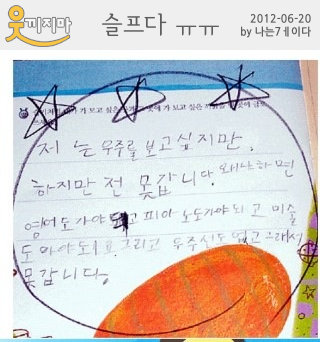 웃끼지마
슬프다 ㅠㅠ
2012-06-20
by 나는7ㅔ이다
가 보고 싶은
에 가 보고 싶은
저 는 우주를 보고 싶지만,
하지만 전 못갑니다. 왜냐는하 면
영어도 가야 되고 피아 노도가야 되 고 미술
도 아야 되 고 그리고 우주선도 없고 그래서
못갑니다.